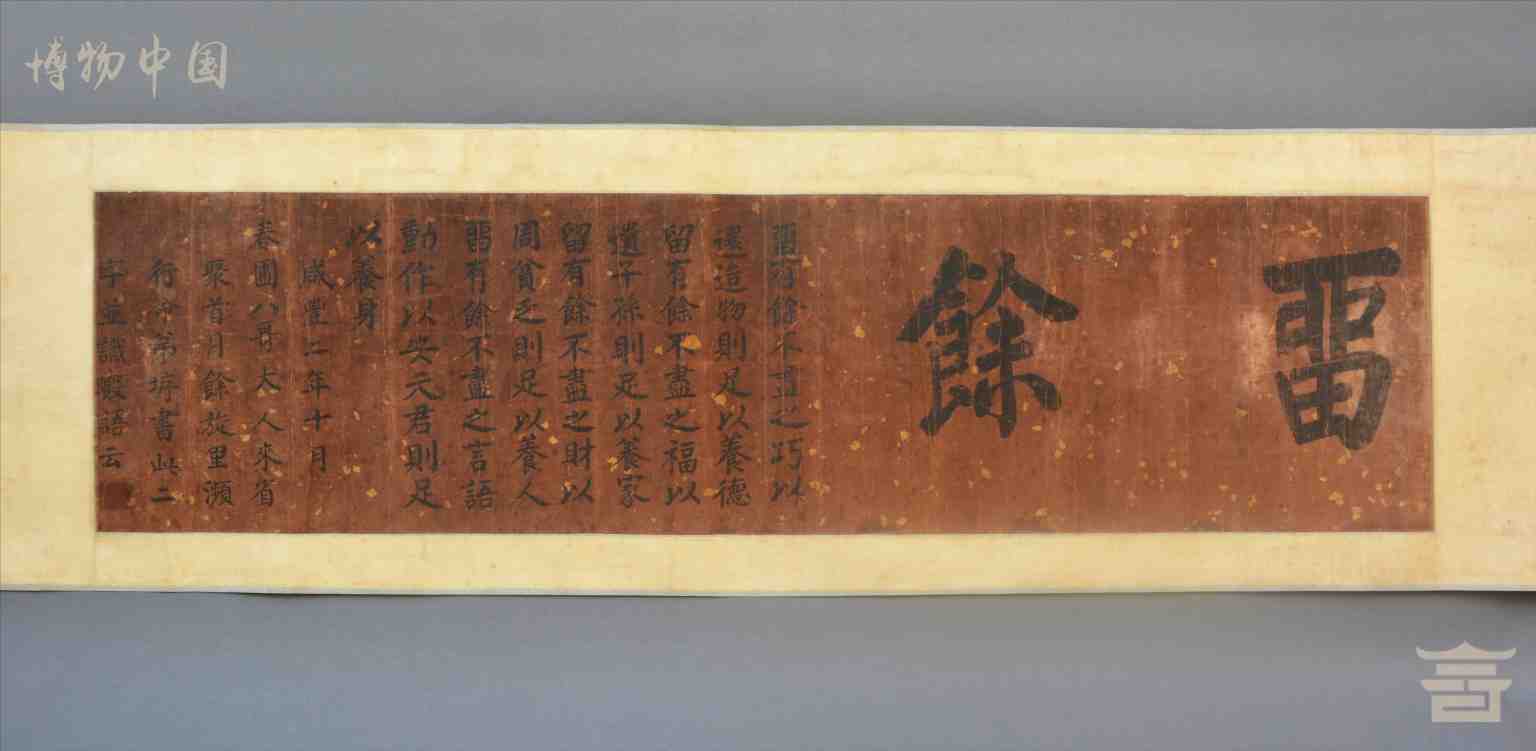 博物中国
畱餘
畱有餘不盡之巧以
還造物則足以養德
留有餘不盡之福以
遺子孫則足以養家
留有餘不盡之財以
周貧乏則足以養人
畱有餘不盡之言語
動作以安天君則足
以養身
咸豐二年十月
春圃八哥大人來省
聚首月餘旋里瀕
行命弟書此二
字並識嘏語云